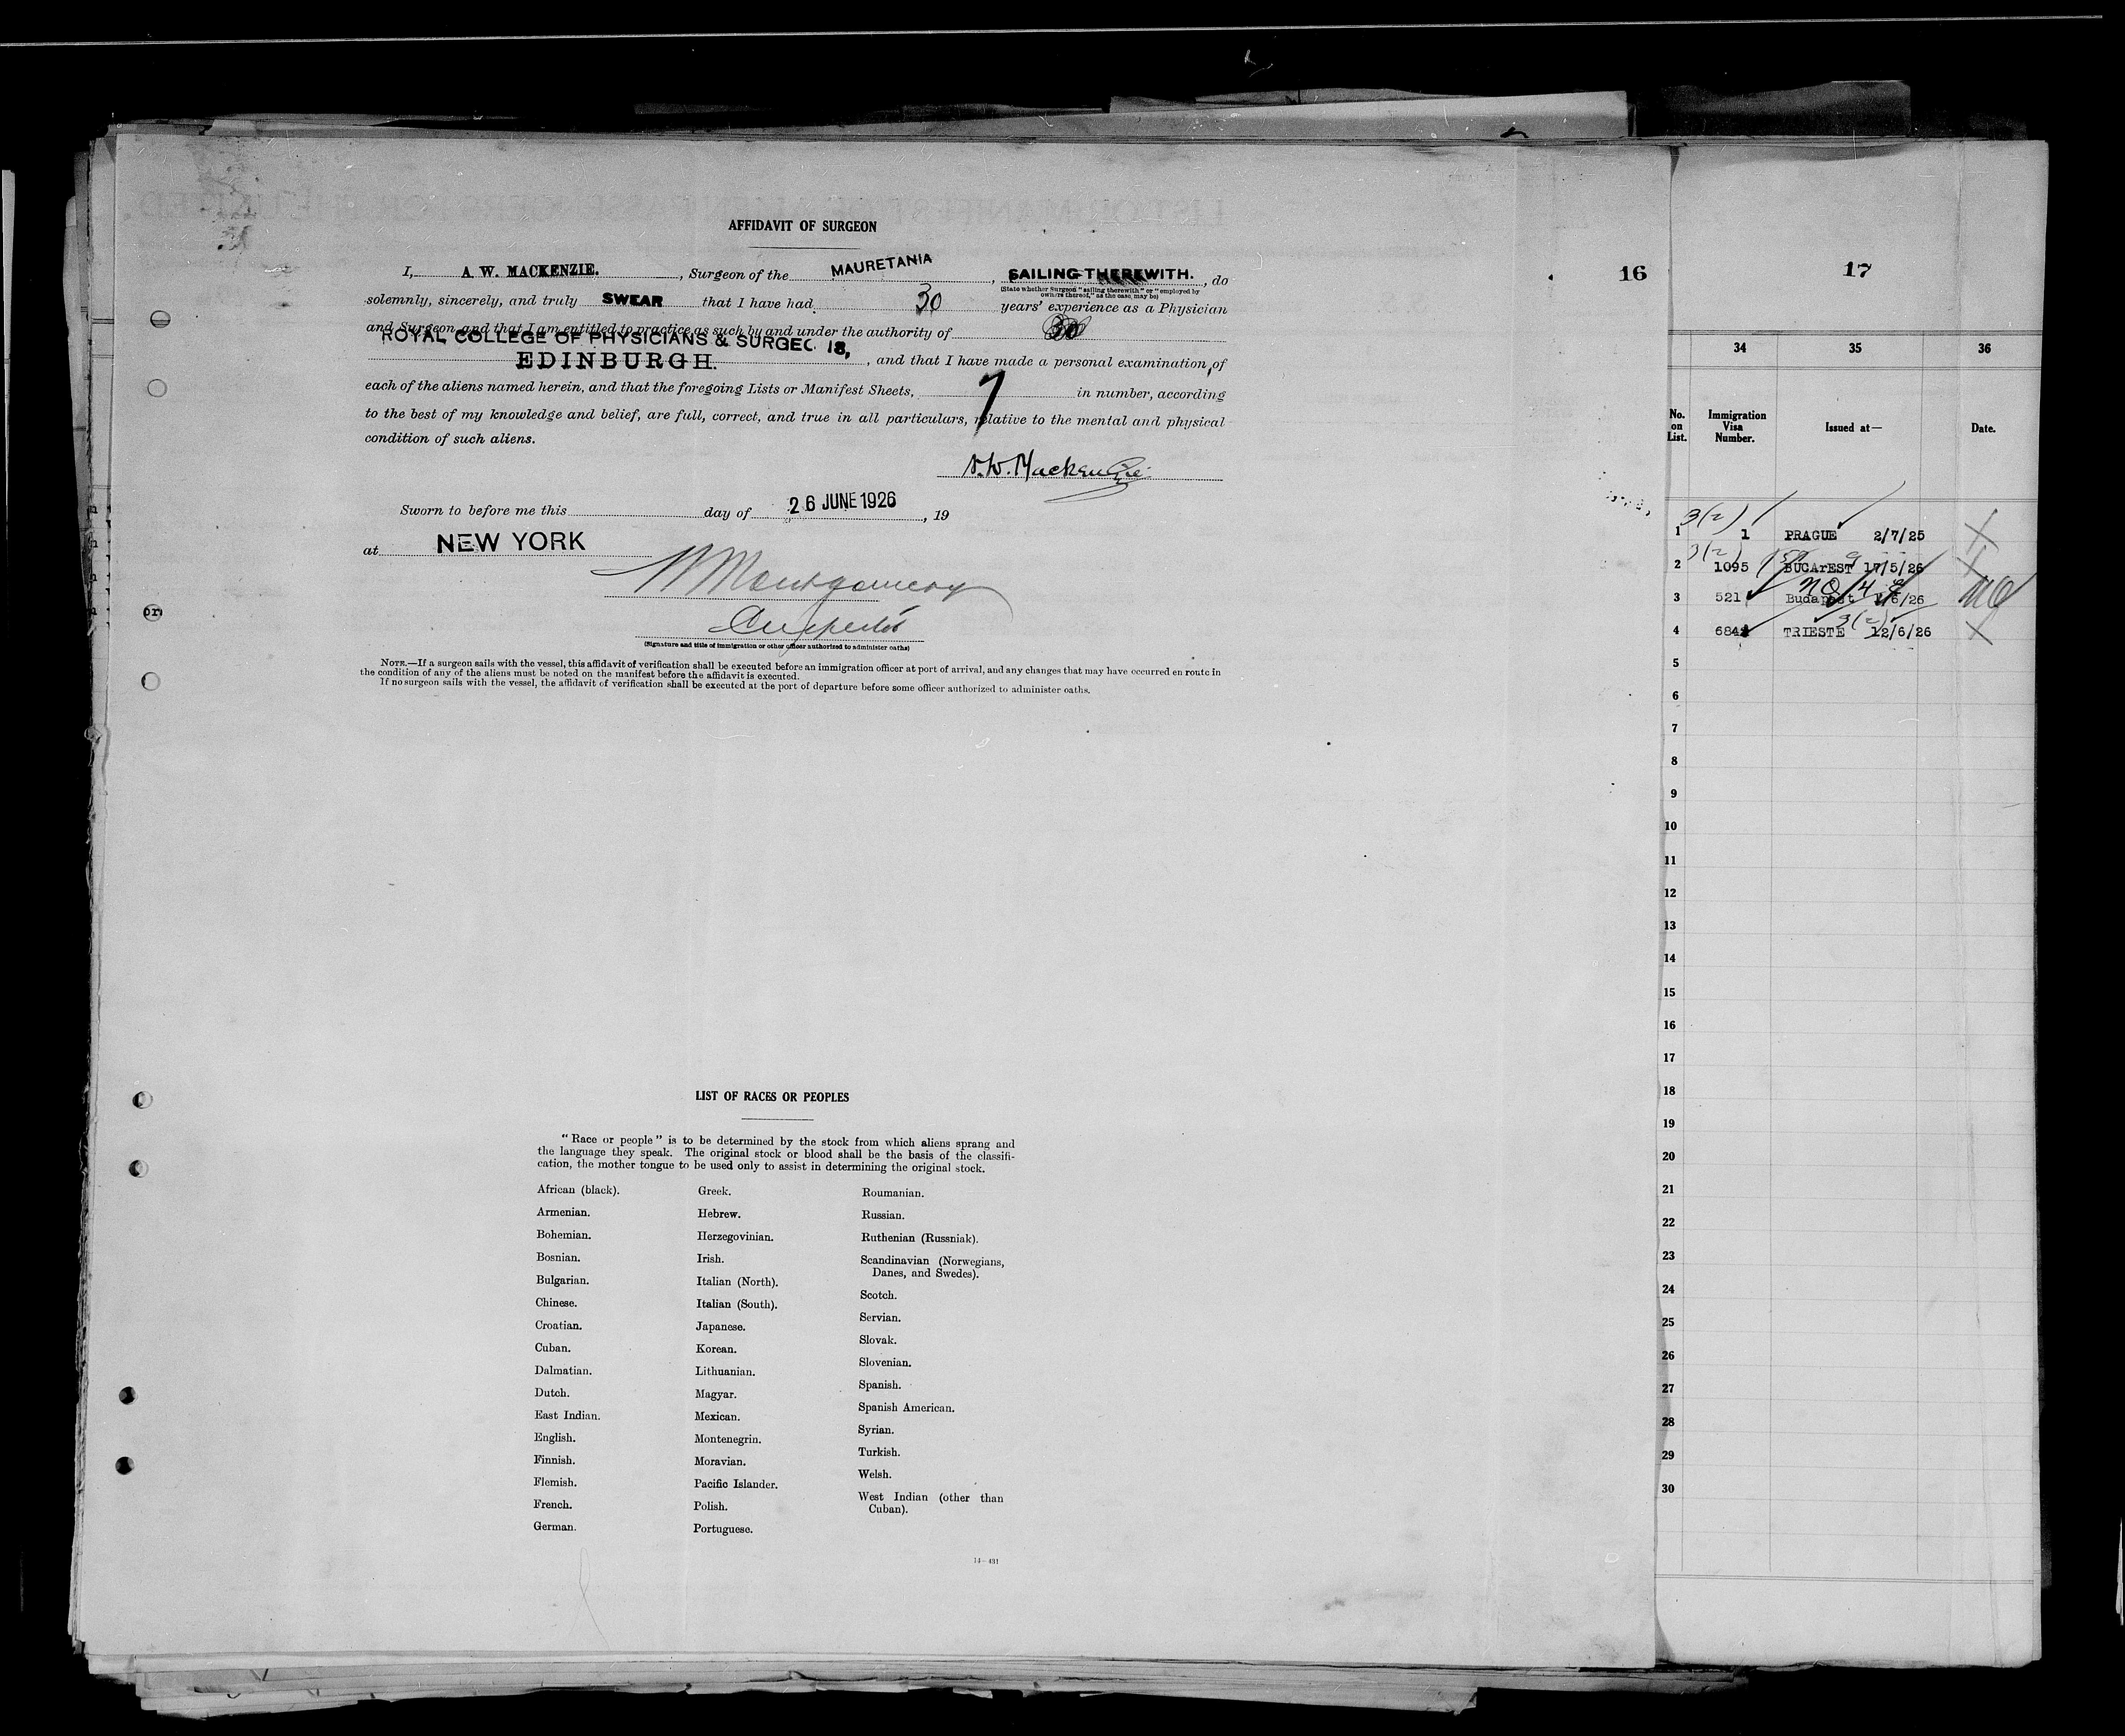 AFFIDAVIT OF SURGEON
I, A. W. MACKENZIE. , Surgeon of the MAURETANIA , SAILING THEREWITH. , do
(State whether Surgeon "sailing therewith" or "employed by
owners thereof," as the case may be)
solemnly, sincerely, and truly SWEAR that I have had 30 years' experience as a Physician
and Surgeon and that I am entitled to practice as such by and under the authority of 30
ROYAL COLLEGE OF PHYSICIANS & SURGEO
EDINBURGH. , and that I have made a personal examination of
each of the aliens named herein, and that the foregoing Lists or Manifest Sheets, 7 in number, according
to the best of my knowledge and belief, are full, correct, and true in all particulars, relative to the mental and physical
condition of such aliens.
A. W. Mackenzie
Sworn to before me this day of 26 JUNE 1926 , 19
at NEW YORK
Montgomery
Inspector
(Signature and title of immigration or other officer authorized to administer oaths)
NOTE.—If a surgeon sails with the vessel, this affidavit of verification shall be executed before an immigration officer at port of arrival, and any changes that may have occurred en route in
the condition of any of the aliens must be noted on the manifest before the affidavit is executed.
If no surgeon sails with the vessel, the affidavit of verification shall be executed at the port of departure before some officer authorized to administer oaths.
LIST OF RACES OR PEOPLES
"Race or people" is to be determined by the stock from which aliens sprang and
the language they speak. The original stock or blood shall be the basis of the classifi-
cation, the mother tongue to be used only to assist in determining the original stock.
African (black).
Armenian.
Bohemian.
Bosnian.
Bulgarian.
Chinese.
Croatian.
Cuban.
Dalmatian.
Dutch.
East Indian.
English.
Finnish.
Flemish.
French.
German.
Greek.
Hebrew.
Herzegovinian.
Irish.
Italian (North).
Italian (South).
Japanese.
Korean.
Lithuanian.
Magyar.
Mexican.
Montenegrin.
Moravian.
Pacific Islander.
Polish.
Portuguese.
Roumanian.
Russian.
Ruthenian (Russniak).
Scandinavian (Norwegians,
Danes, and Swedes).
Scotch.
Servian.
Slovak.
Slovenian.
Spanish.
Spanish American.
Syrian.
Turkish.
Welsh.
West Indian (other than
Cuban).
14—431
or
16
17
34 35 36
No.
on
List.
Immigration
Visa
Number.
Issued at—
Date.
3(2)
1 1 PRAGUE 2/7/25
3(2)
2 1095 BUCArEST 17/5/26
NO
3 521 Budapest /6/26
3(2)
4 684 TRIESTE 12/6/26
5
6
7
8
9
10
11
12
13
14
15
16
17
18
19
20
21
22
23
24
25
26
27
28
29
30